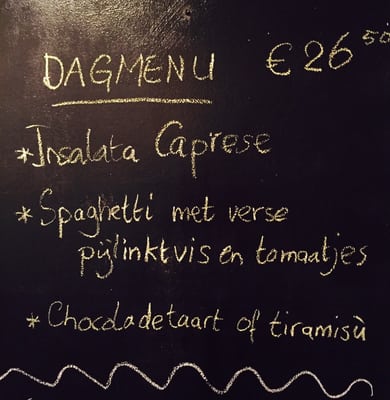 DAGMENU €26 50
* Insalata Caprese
* Spaghetti met verse
pijlinktvis en tomaatjes
* Chocoladetaart of tiramisù